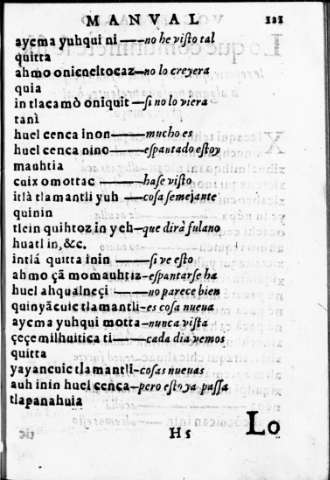 MANVAL 121
ayema yuhqui ni——no he visto tal
quitta
ahmo onicneltocaz—no lo creyera
quia
in tlacamò oniquit—si no lo viera
tani
huel cenca inon——mucho es
huel cenca nino——espantado estoy
mauhtia
cuix omottac——hase visto
itlà tlamantli yuh——cosa semejante
quinin
tlein quihtoz in yeh—que dirá fulano
huatl in,&c.
intlá quitta inin——si ve esto
ahmo çã momauhtiz—espantarse ha
huel ahqualneçi——no parece bien
quinyãcuic tlamantli—es cosa nueua
ayema yuhqui motta—nunca vista
çeçemilhuitica ti——cada dia vemos
quitta
yayancuic tlamantli—cosas nueuas
auh inin huel cenca—pero esto ya passa
tlapanahuia
H5 Lo